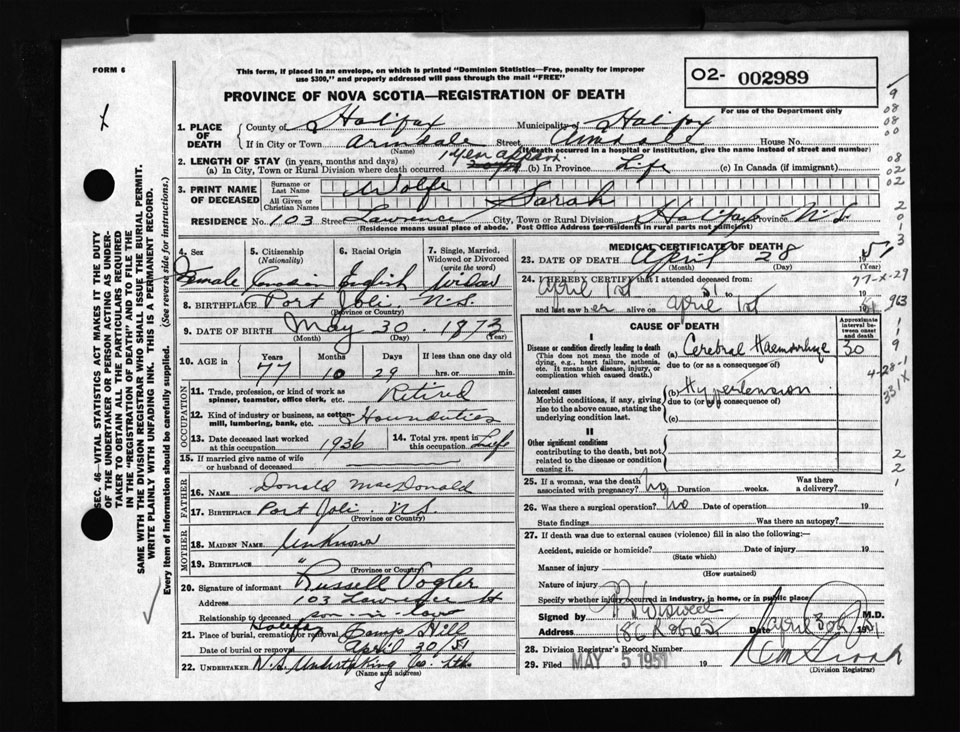 FORM 6
This form, if placed in an envelope, on which is printed "Dominion Statistics—Free, penalty for improper
use $300," and properly addressed will pass through the mail "FREE"
02- 002989
For use of the Department only
PROVINCE OF NOVA SCOTIA—REGISTRATION OF DEATH
SEC. 46—VITAL STATISTICS ACT MAKES IT THE DUTY
OF THE UNDERTAKER OR PERSON ACTING AS UNDER-
TAKER TO OBTAIN ALL THE PARTICULARS REQUIRED
IN THE "REGISTRATION OF DEATH" AND TO FILE THE
SAME WITH THE DIVISION REGISTRAR WHO SHALL ISSUE THE BURIAL PERMIT.
WRITE PLAINLY WITH UNFADING INK. THIS IS A PERMANENT RECORD.
Every item of information should be carefully supplied. (See reverse side for instructions.)
1. PLACE OF DEATH
County of Halifax Municipality of Halifax
If in City or Town Armdale Street House No.
(Name) (If death occurred in a hospital or institution, give the name instead of street and number)
2. LENGTH OF STAY (in years, months and days)
(a) In City, Town or Rural Division where death occurred 1 year approx. (b) In Province Life (c) In Canada (if immigrant)
3. PRINT NAME OF DECEASED
Surname or Last Name Wolfe
All Given or Christian Names Sarah
RESIDENCE No. 103 Street Lawrence City, Town or Rural Division Halifax Province N.S.
(Residence means usual place of abode. Post Office Address for residents in rural parts not sufficient)
4. Sex Female
5. Citizenship (Nationality) Canadian
6. Racial Origin English
7. Single, Married, Widowed or Divorced (write the word) Widow
8. BIRTHPLACE Port Joli N.S.
(Province or Country)
9. DATE OF BIRTH May 30 1873
(Month) (Day) (Year)
10. AGE in Years Months Days If less than one day old
77 10 29 hrs. or min.
OCCUPATION
11. Trade, profession, or kind of work as
spinner, teamster, office clerk, etc. Retired
12. Kind of industry or business, as cotton-
mill, lumbering, bank, etc. House duties
13. Date deceased last worked
at this occupation 1936
14. Total yrs. spent in
this occupation Life
15. If married give name of wife
or husband of deceased
FATHER
16. NAME Donald MacDonald
17. BIRTHPLACE Port Joli N.S.
(Province or Country)
MOTHER
18. MAIDEN NAME Unknown
19. BIRTHPLACE "
(Province or Country)
20. Signature of informant Russell Vogler
Address 103 Lawrence St
Relationship to deceased son in law
21. Place of burial, cremation or removal Halifax Camp Hill
Date of burial or removal April 30/51
22. UNDERTAKER N.S. Undertaking Co. Ltd.
(Name and address)
MEDICAL CERTIFICATE OF DEATH
23. DATE OF DEATH April 28 1951
(Month) (Day) (Year)
24. I HEREBY CERTIFY that I attended deceased from
April 1st 51 to
and last saw her alive on April 1st 19
CAUSE OF DEATH
Approximate interval between onset and death
I
Disease or condition directly leading to death
(This does not mean the mode of
dying, e.g., heart failure, asthenia,
etc. It means the disease, injury, or
complication which caused death.)
(a) Cerebral Haemorrhage 30
due to (or as a consequence of)
Antecedent causes
Morbid conditions, if any, giving
rise to the above cause, stating the
underlying condition last.
(b) Hypertension
due to (or as a consequence of)
(c)
II
Other significant conditions
contributing to the death, but not
related to the disease or condition
causing it.
25. If a woman, was the death
associated with pregnancy? no Duration weeks. Was there a delivery?
26. Was there a surgical operation? no Date of operation 19
State findings Was there an autopsy?
27. If death was due to external causes (violence) fill in also the following:
Accident, suicide or homicide? Date of injury 19
(State which)
Manner of injury
(How sustained)
Nature of injury
Specify whether injury occurred in industry, in home, or in public place
Signed by M.D.
Address 186 Date April 30th 1951
28. Division Registrar's Record Number
29. Filed MAY 5 1951 19
(Division Registrar)